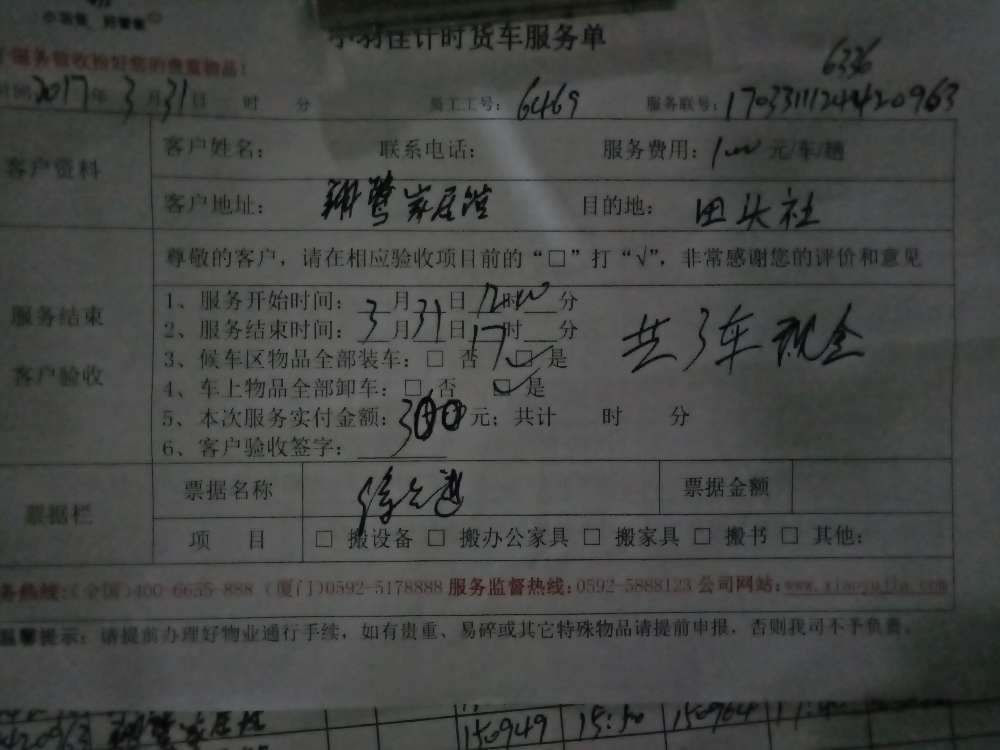 小羽佳 好管家
小羽佳计时货车服务单
服务验收前好您的贵重物品!
6336
时间 2017年 3月 31日 时 分 员工工号: 6469 服务联号: 1703311124420963
客户资料
客户姓名: 联系电话: 服务费用: 100 元/车/趟
客户地址: 翔鹭家居馆 目的地: 田头社
尊敬的客户，请在相应验收项目前的“□”打“√”，非常感谢您的评价和意见
服务结束
客户验收
1、服务开始时间: 3月31日 12时00分
2、服务结束时间: 3月31日17时 分
3、候车区物品全部装车: □ 否 ☑ 是
共3车 现金
4、车上物品全部卸车: □ 否 ☑ 是
5、本次服务实付金额: 300元; 共计 时 分
6、客户验收签字:
票据栏
票据名称 票据金额
项 目 □ 搬设备 □ 搬办公家具 □ 搬家具 □ 搬书 □ 其他:
务热线:(全国)400-6655-888 (厦门)0592-5178888 服务监督热线:0592-5888123 公司网站: www.xiaoyujia.com
温馨提示: 请提前办理好物业通行手续，如有贵重、易碎或其它特殊物品请提前申报，否则我司不予负责。
420963 翔鹭家居馆 150949 15:50 150964 17:40